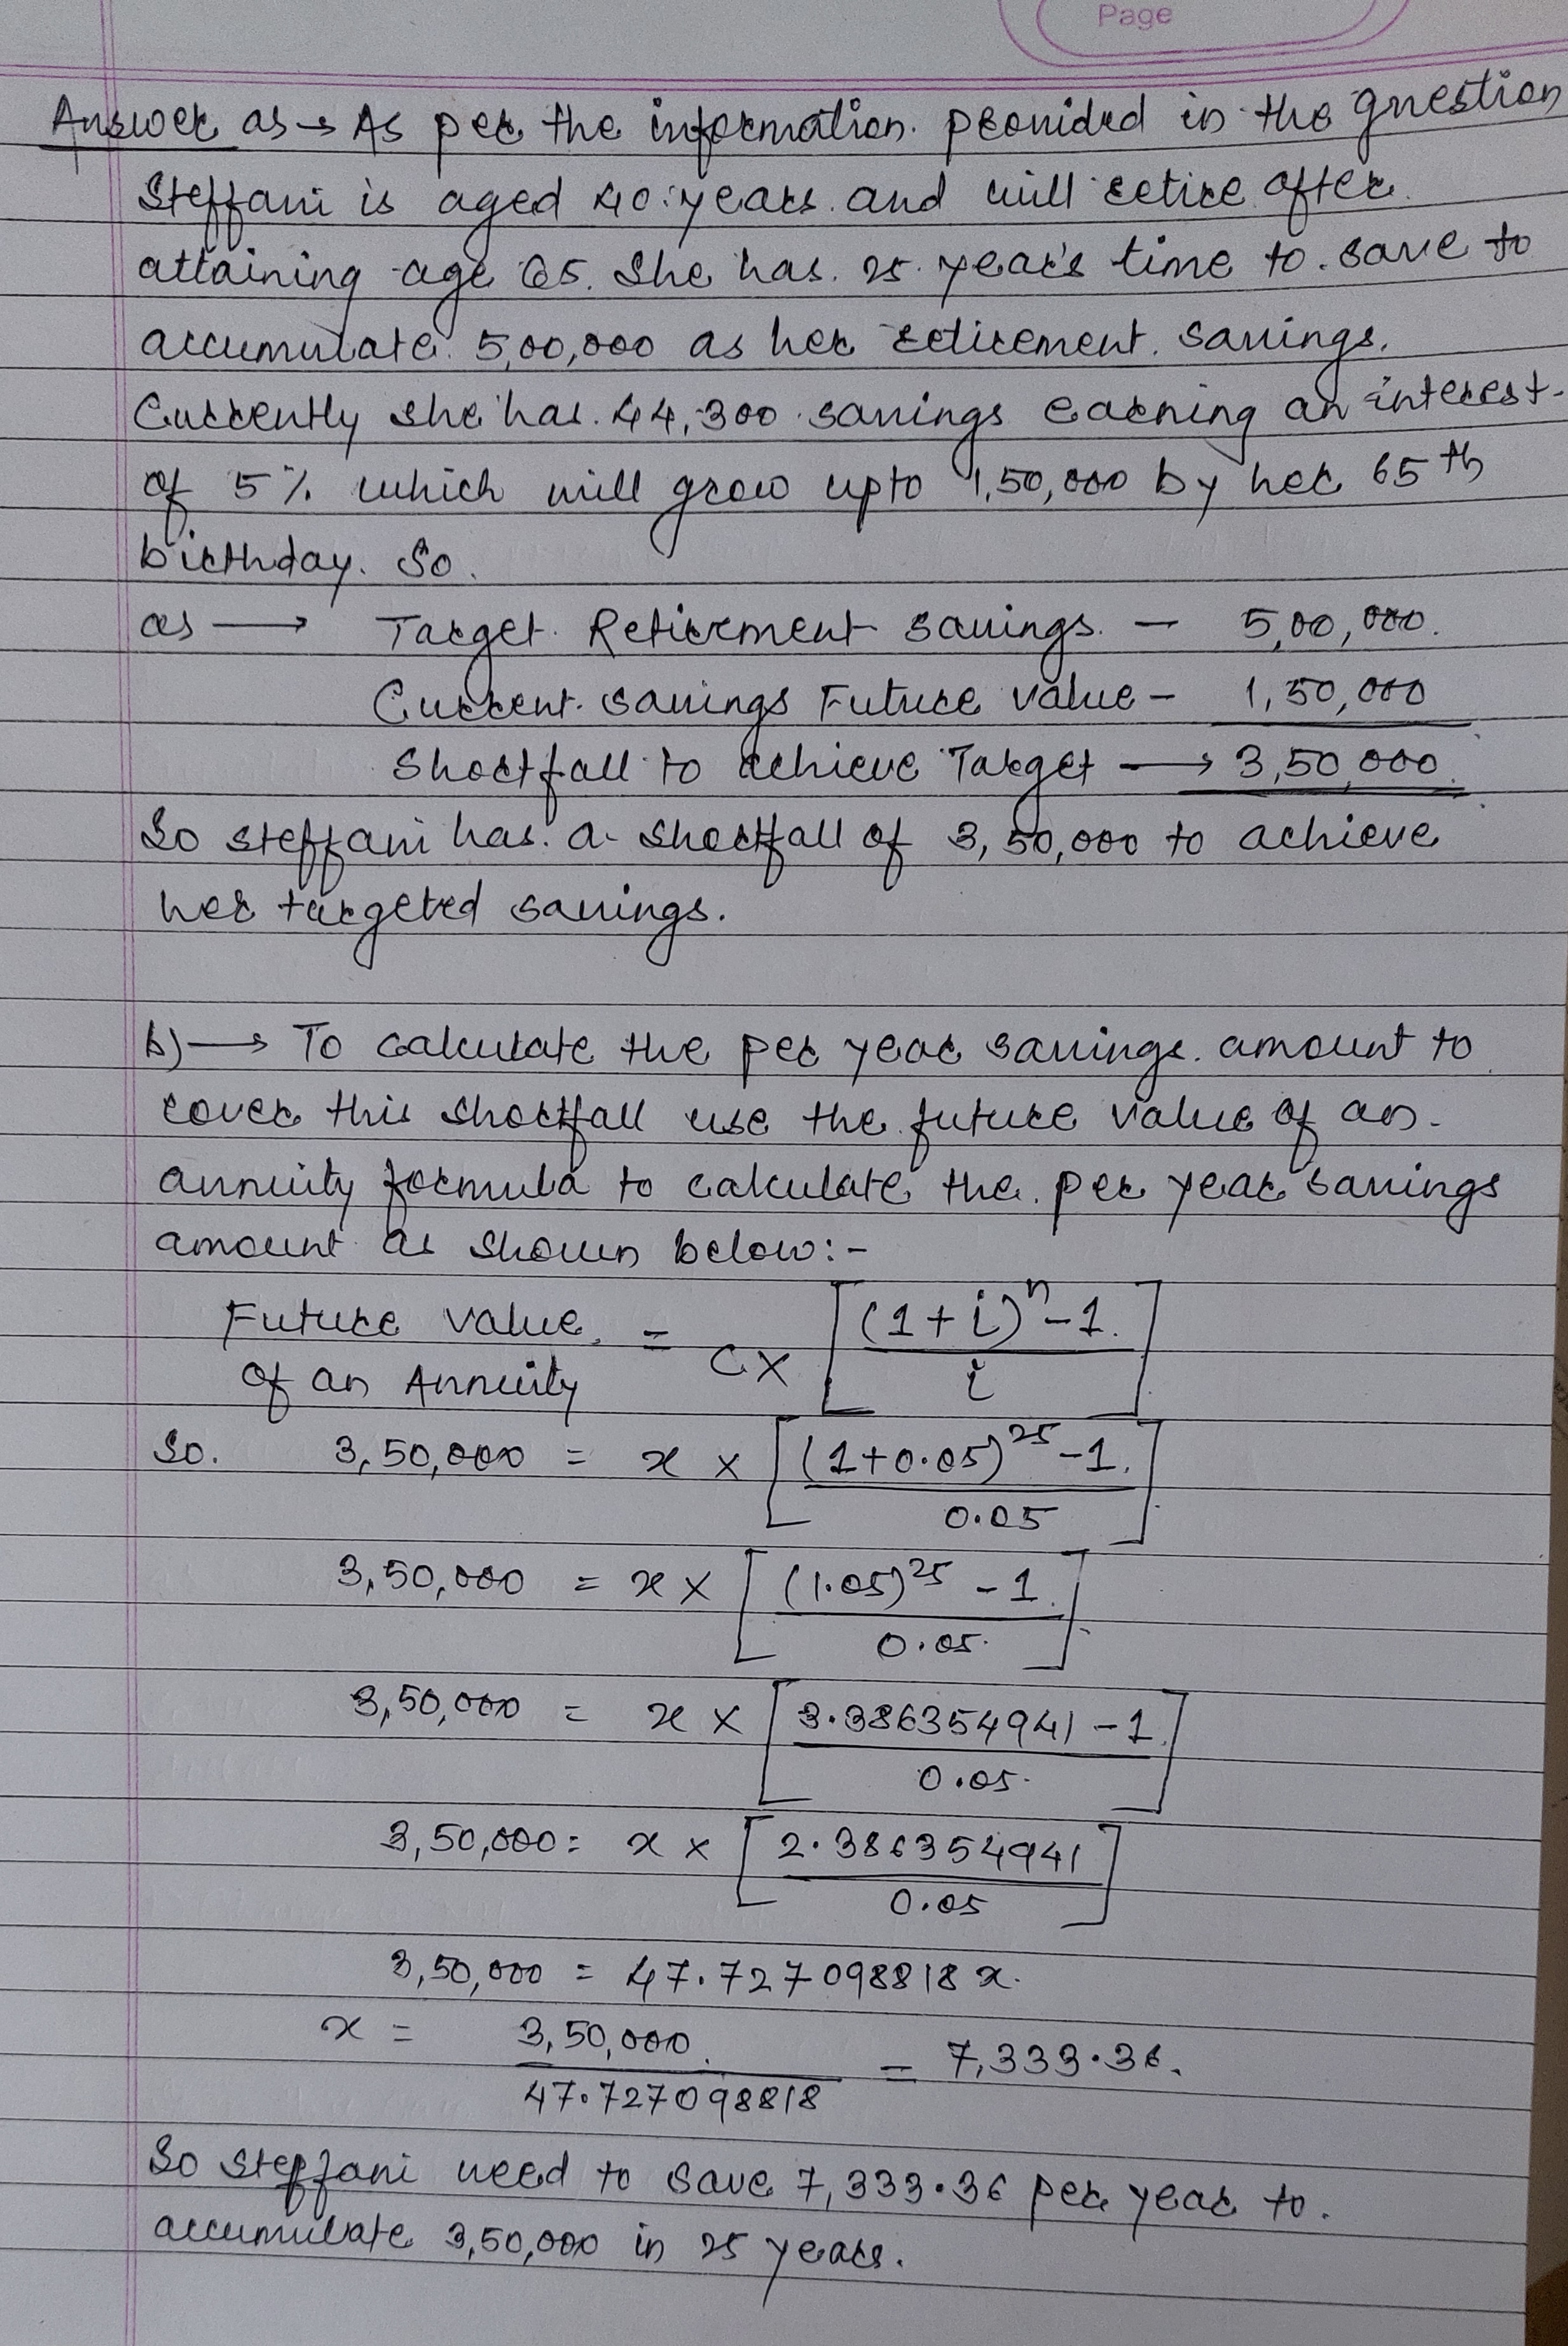 Page
Answer a → As per the information provided in the question
Steffani is aged 40 years and will retire after
attaining age 65. She has 25 year's time to save to
accumulate 5,00,000 as her retirement savings.
Currently she has 44,300 savings earning an interest
of 5% which will grow upto 1,50,000 by her 65th
birthday. So
a → Target Retirement savings — 5,00,000.
Current savings Future Value - 1,50,000
Shortfall to achieve Target → 3,50,000
So Steffani has a shortfall of 3,50,000 to achieve
her targeted savings.
b) → To calculate the per year savings amount to
cover this shortfall use the future value of an
annuity formula to calculate the per year savings
amount as shown below:-
Future value of an Annuity = C × [(1+i)^n - 1 / i]
So. 3,50,000 = x × [(1+0.05)^25 - 1 / 0.05]
3,50,000 = x × [(1.05)^25 - 1 / 0.05]
3,50,000 = x × [3.386354941 - 1 / 0.05]
3,50,000 = x × [2.386354941 / 0.05]
3,50,000 = 47.727098818 x.
x = 3,50,000 / 47.727098818 = 7,333.36.
So Steffani need to save 7,333.36 per year to
accumulate 3,50,000 in 25 years.